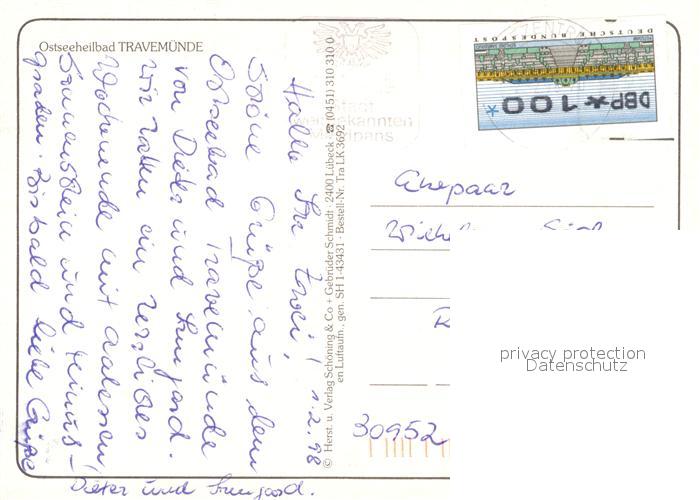 Ostseeheilbad TRAVEMÜNDE
Hallo Ihr Zwei! 1.2.98
Schöne Grüße aus dem
Ostseebad Travemünde
von Dieter und Irmgard.
Wir haben ein herrliches
Wochenende mit
Sonnenschein und
Graden. Bis bald liebe Grüße
Dieter und Irmgard.
© Herst. u. Verlag Schöning & Co + Gebrüder Schmidt · 2400 Lübeck ☎ (0451) 310 310 0
en Luftaufn., gen. SH 1-43431 · Bestell-Nr. Tra LK 3692
Stadt
weltbekannten
Marzipans
DEUTSCHE BUNDESPOST
DBP * 100 *
Ehepaar
30952
privacy protection
Datenschutz